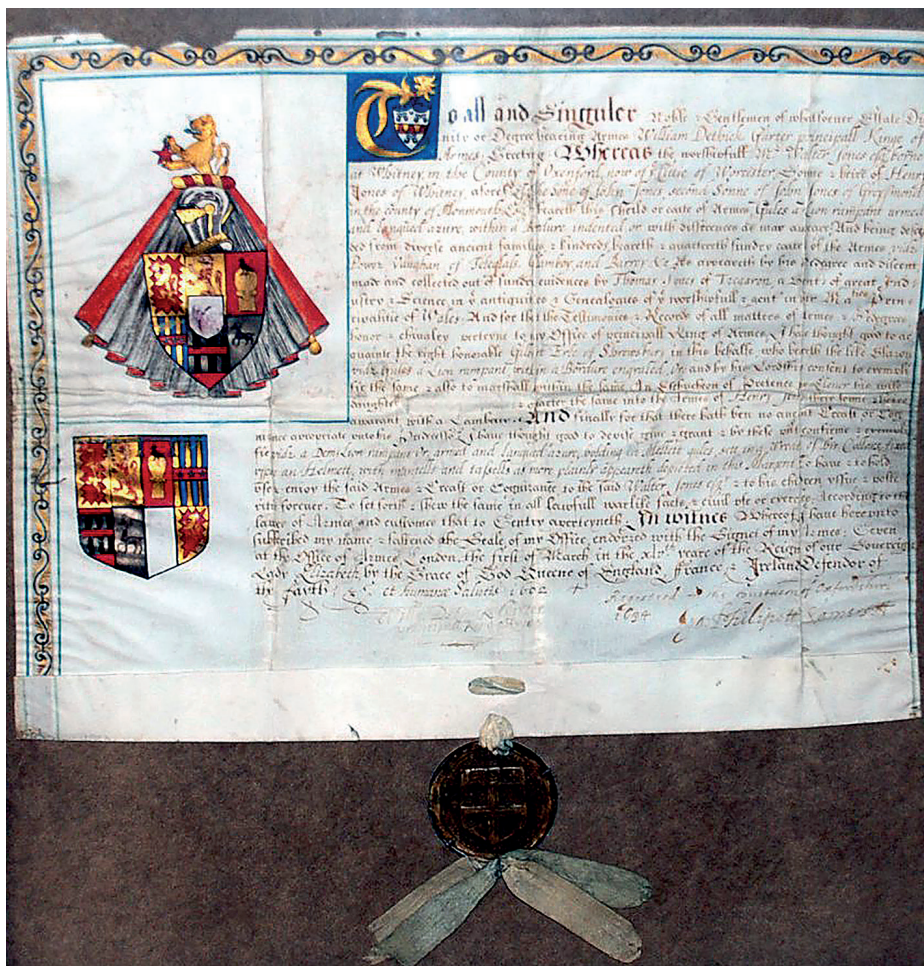 To all and Singuler Noble & Gentlemen of whatsoever Estate Dig
nity or Degree bearing Armes William Dethick Garter principall Kinge of
Armes Greeting. Whereas the worshipfull Mr Walter Jones esqr borne
at Whitney in the County of Oxenford now of ye Citie of Worcester Sonne & heire of Henry
Jones of Whitney aforesd the sonne of John Jones second Sonne of John Jones of
in the county of Monmouth beareth this Sheild or coate of Armes Gules a Lion rampant armed
and langued azure, within a Bordure indented or with differences as may appeare And being descen
ded from diverse ancient families & kindreds beareth & quartereth sundry coates of the Armes
Power Vaughan of and Barry &c As appeareth by his Pedegree and discent
made and collected out of sundry evidences by Thomas Jones of Tregaron a Gent of great Ind
ustry & Science in ye antiquities & Genealogies of ye worshipfull & gent in her Matties Prin
cipalitie of Wales. And for that the Testimonies & Records of all matters of Armes & Pedegrees
honor & chivalry perteyne to my Office of principall King of Armes, I have thought good to ac
quainte the right honorable Gilbert Erle of Shrewsbury in this behalfe who beareth the like Blazon
vidz Gules a Lion rampant within a Bordure engrailed Or and by his Lordships consent to exempli
fie the same & also to marshall within the same In Escucheon of Pretence his wiffe
daughter & quarter the same into the Armes of Henry Jones their sonne & heire
with a Lambeaux. And finally for that there hath ben no ancient Creast or Cog
nisance apropriate unto his I have thought good to devise give & grant & by these confirme & exempli
fie vidz a Demi Lion rampant Or armed and langued azure, holding a Mollett gules, sett on a Wreath of his Collours
upon an Helmett with mantells and tassells as more plainly appeareth depicted in this Margent To have & to hold
use & enjoy the said Armes & Creast or Cognizance to the said Walter Jones esqr & to his children yssue & poste
rity forever. To set forth & shew the same in all lawfull warlike facts & civill use or exercises According to the
lawes of Armes and customes that to Gentry apperteyneth. In witnes Whereof I have hereunto
subscribed my name & fastened the Seale of my Office, endorced with the Signet of my Armes. Geven
at the Office of Armes London the first of March in the yeare of the Reign of our Sovereign
Lady Elizabeth by the Grace of God Queene of England France & Ireland Defendor of
the fayth &c et humanæ Salutis 1602
Registred in the visitation of Oxfordshire
1634 Jo: Philipott Somersett